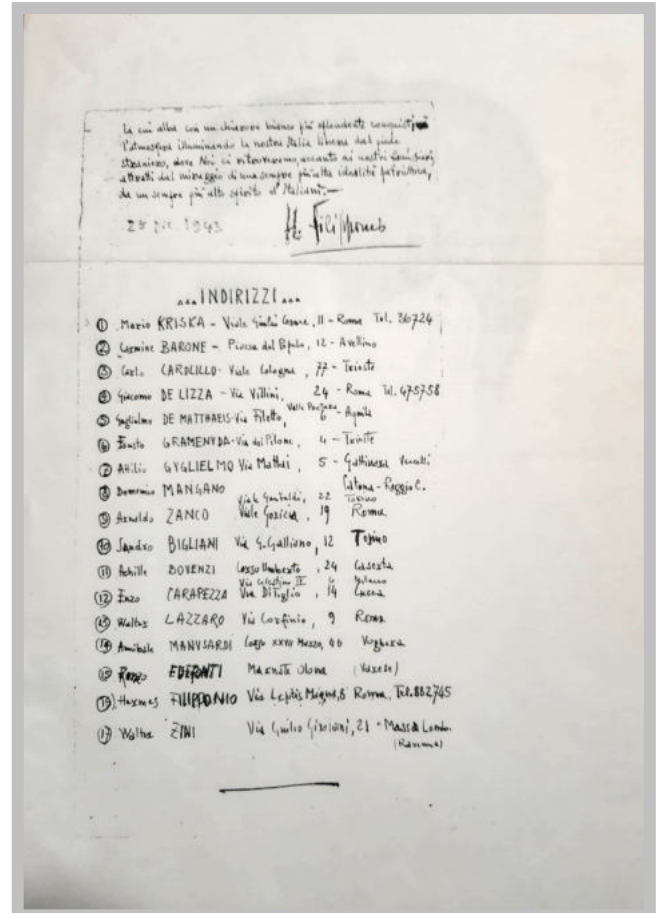 La cui alba con un chiarore bianco più splendente
l'atmosfera illuminando la nostra Italia libera dal piede
straniero, dove Noi ci ritroveremo, accanto ai nostri cari,
attratti dal miraggio di una sempre più alta idealità patriottica,
da un sempre più alto spirito d'Italiani.—
25 Dic. 1943 H. Filipponio
... INDIRIZZI ...
① Mario KRISKA - Viale Giulio Cesare, 11 - Roma Tel. 36724
② Carmine BARONE - Piazza del Popolo, 12 - Avellino
③ Carlo CAROLILLO - Viale Cologna, 77 - Trieste
④ Giacomo DE LIZZA - Via Villini, 24 - Roma Tel. 475758
⑤ Guglielmo DE MATTHAEIS - Via Filetto, 6 - Aquila
⑥ Fausto GRAMENUDA - Via del Pilone, 4 - Trieste
⑦ Attilio GUGLIELMO Via Mattei, 5 - Gattinara Vercelli
⑧ Domenico MANGANO Catona - Reggio C.
Viale Garibaldi, 22 Torino
⑨ Arnaldo ZANCO Viale Gorizia, 19 Roma
⑩ Sandro BIGLIANI Via G. Galliano, 12 Torino
⑪ Achille BOVENZI Corso Umberto, 24 Caserta
Via Celestino IV 6 Milano
⑫ Enzo CARAPEZZA Via Di Tiglio, 14 Lucca
⑬ Walter LAZZARO Via Corfinio, 9 Roma
⑭ Annibale MANUSARDI Corso XXVII Marzo, 46 Voghera
⑮ EDEFONTI Marnate Olona (Varese)
⑯ Hermes FILIPPONIO Via Leptis Magna, 8 Roma, Tel. 882745
⑰ Walter ZINI Via Giulio 21 - Massa Lomb.
(Ravenna)